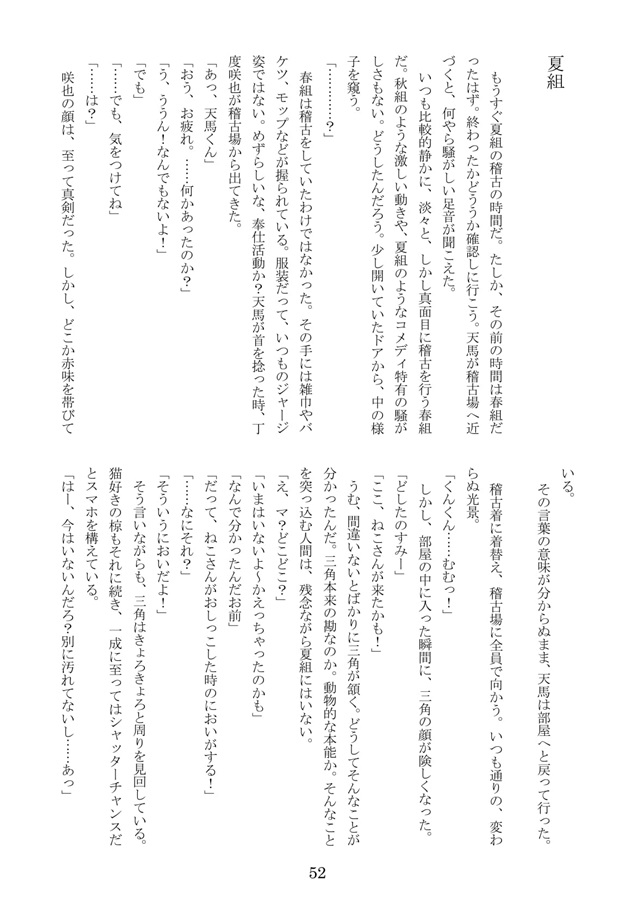 夏組
　もうすぐ夏組の稽古の時間だ。たしか、その前の時間は春組だ
ったはず。終わったかどううか確認しに行こう。天馬が稽古場へ近
づくと、何やら騒がしい足音が聞こえた。
　いつも比較的静かに、淡々と、しかし真面目に稽古を行う春組
だ。秋組のような激しい動きや、夏組のようなコメディ特有の騒が
しさもない。どうしたんだろう。少し開いていたドアから、中の様
子を窺う。
「…………？」
　春組は稽古をしていたわけではなかった。その手には雑巾やバ
ケツ、モップなどが握られている。服装だって、いつものジャージ
姿ではない。めずらしいな、奉仕活動か？天馬が首を捻った時、丁
度咲也が稽古場から出てきた。
「あっ、天馬くん」
「おう、お疲れ。……何かあったのか？」
「う、ううん！なんでもないよ！」
「でも」
「……でも、気をつけてね」
「……は？」
　咲也の顔は、至って真剣だった。しかし、どこか赤味を帯びて
いる。
　その言葉の意味が分からぬまま、天馬は部屋へと戻って行った。
　稽古着に着替え、稽古場に全員で向かう。いつも通りの、変わ
らぬ光景。
「くんくん……むむっ！」
　しかし、部屋の中に入った瞬間に、三角の顔が険しくなった。
「どしたのすみー」
「ここ、ねこさんが来たかも！」
　うむ、間違いないとばかりに三角が頷く。どうしてそんなことが
分かったんだ。三角本来の勘なのか。動物的な本能か。そんなこと
を突っ込む人間は、残念ながら夏組にはいない。
「え、マ？どこどこ？」
「いまはいないよ～かえっちゃったのかも」
「なんで分かったんだお前」
「だって、ねこさんがおしっこした時のにおいがする！」
「……なにそれ？」
「そういうにおいだよ！」
　そう言いながらも、三角はきょろきょろと周りを見回している。
猫好きの椋もそれに続き、一成に至ってはシャッターチャンスだ
とスマホを構えている。
「はー、今はいないんだろ？別に汚れてないし……あっ」
52